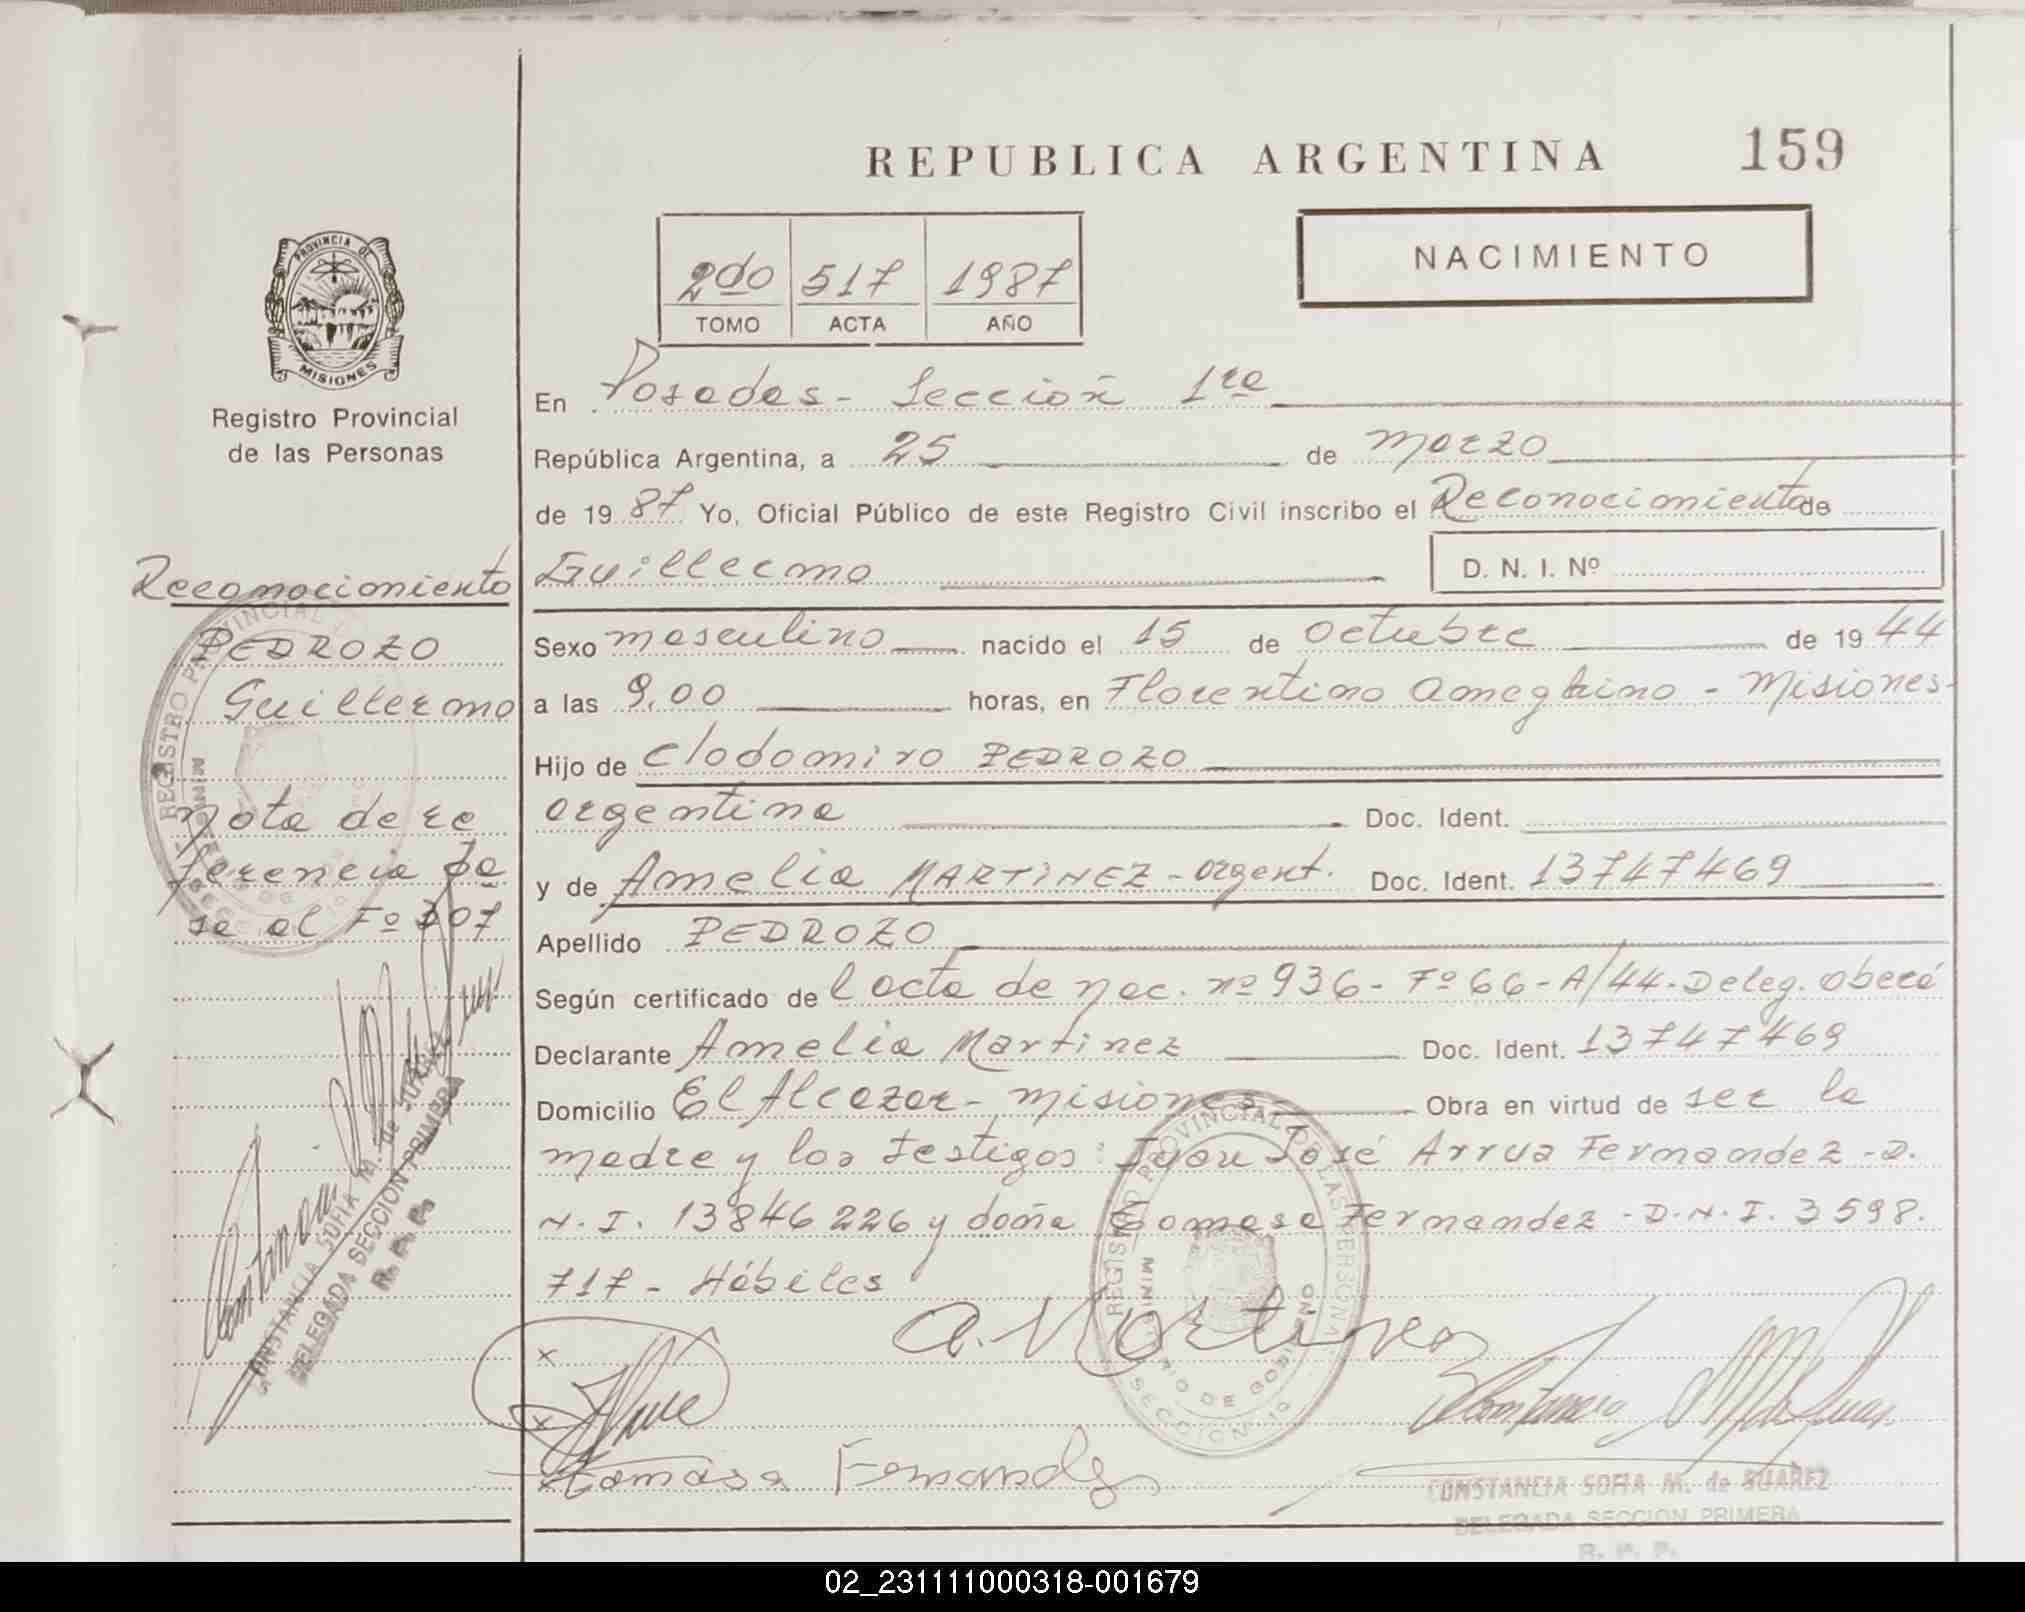 REPUBLICA ARGENTINA 159
PROVINCIA DE
MISIONES
Registro Provincial
de las Personas
2do 517 1987
TOMO ACTA AÑO
NACIMIENTO
En Posadas - Sección 1ra
República Argentina, a 25 de marzo
de 1987 Yo, Oficial Público de este Registro Civil inscribo el Reconocimiento de
Guillermo D. N. I. Nº
Sexo masculino nacido el 15 de octubre de 1944
a las 9,00 horas, en Florentino Ameghino - Misiones-
Hijo de Clodomiro PEDROZO
argentina Doc. Ident.
y de Amelia MARTINEZ - argent. Doc. Ident. 13747469
Apellido PEDROZO
Según certificado de l acta de nac. nº 936 - Fº 66 - A/44. Deleg. Oberá
Declarante Amelia Martinez Doc. Ident. 13747469
Domicilio El Alcazar - Misiones - Obra en virtud de ser la
madre y los testigos: Juan José Arrua Fernandez - D.
N. I. 13846226 y doña Tomasa Fernandez - D.N.I. 3598.
717 - Hábiles
A. Martinez
Tomasa Fernandez
CONSTANCIA SOFIA M. de SUAREZ
DELEGADA SECCION PRIMERA
R. P. P.
Reconocimiento
PEDROZO
Guillermo
Nota de re
ferencia pa
sa al Fº 307
CONSTANCIA SOFIA M. de SUAREZ
DELEGADA SECCION PRIMERA
R. P. P.
REGISTRO PROVINCIAL DE LAS PERSONAS
MINISTERIO DE GOBIERNO
SECCION 1º
02_231111000318-001679